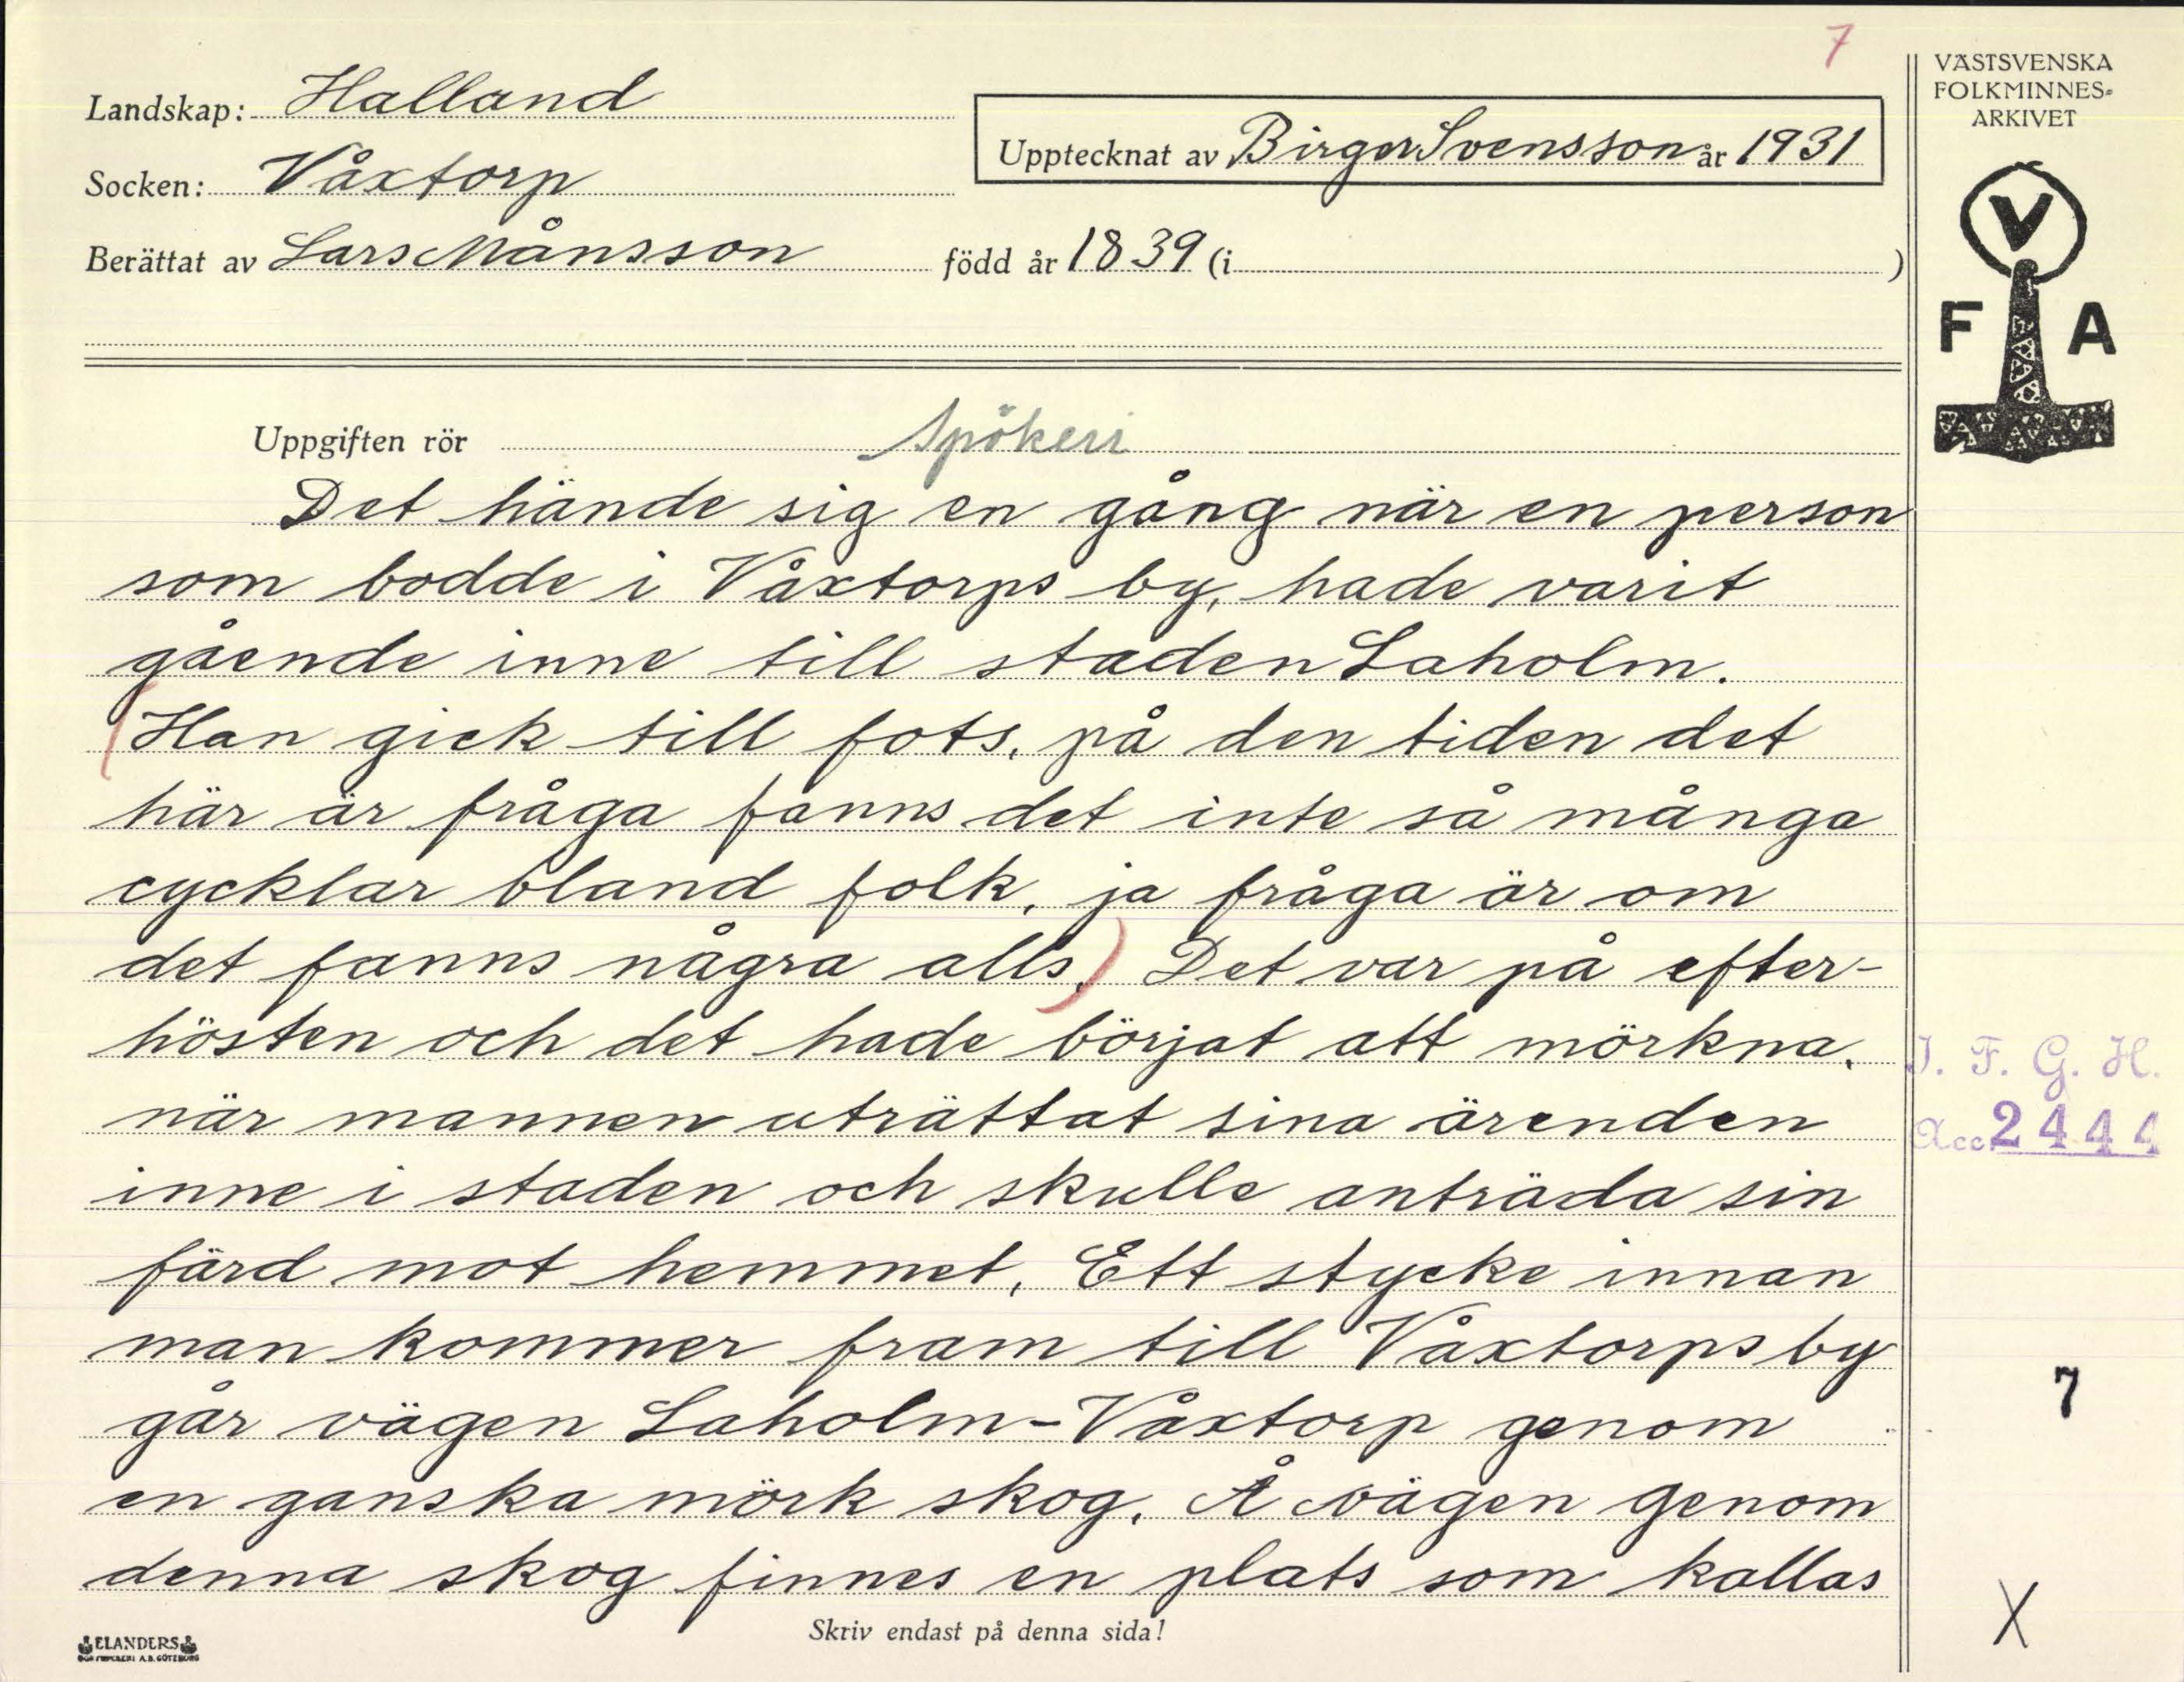 7
Landskap: Halland
Socken: Våxtorp
Berättat av Lars Månsson född år 1839 (i )
Upptecknat av Birger Svensson år 1931
VÄSTSVENSKA
FOLKMINNES-
ARKIVET
V
F A
Uppgiften rör Spökeri
Det hände sig en gång när en person
som bodde i Våxtorps by, hade varit
gående inne till staden Laholm.
(Han gick till fots, på den tiden det
här är fråga fanns det inte så många
cycklar bland folk, ja fråga är om
det fanns några alls.) Det var på efter-
hösten och det hade börjat att mörkna,
när mannen uträttat sina ärenden
inne i staden och skulle anträda sin
färd mot hemmet. Ett stycke innan
man kommer fram till Våxtorps by
går vägen Laholm-Våxtorp genom
en ganska mörk skog. Å vägen genom
denna skog finnes en plats som kallas
I. F. G. H.
Acc. 2444
7
X
Skriv endast på denna sida!
ELANDERS
BOKTRYCKERI A.B. GÖTEBORG